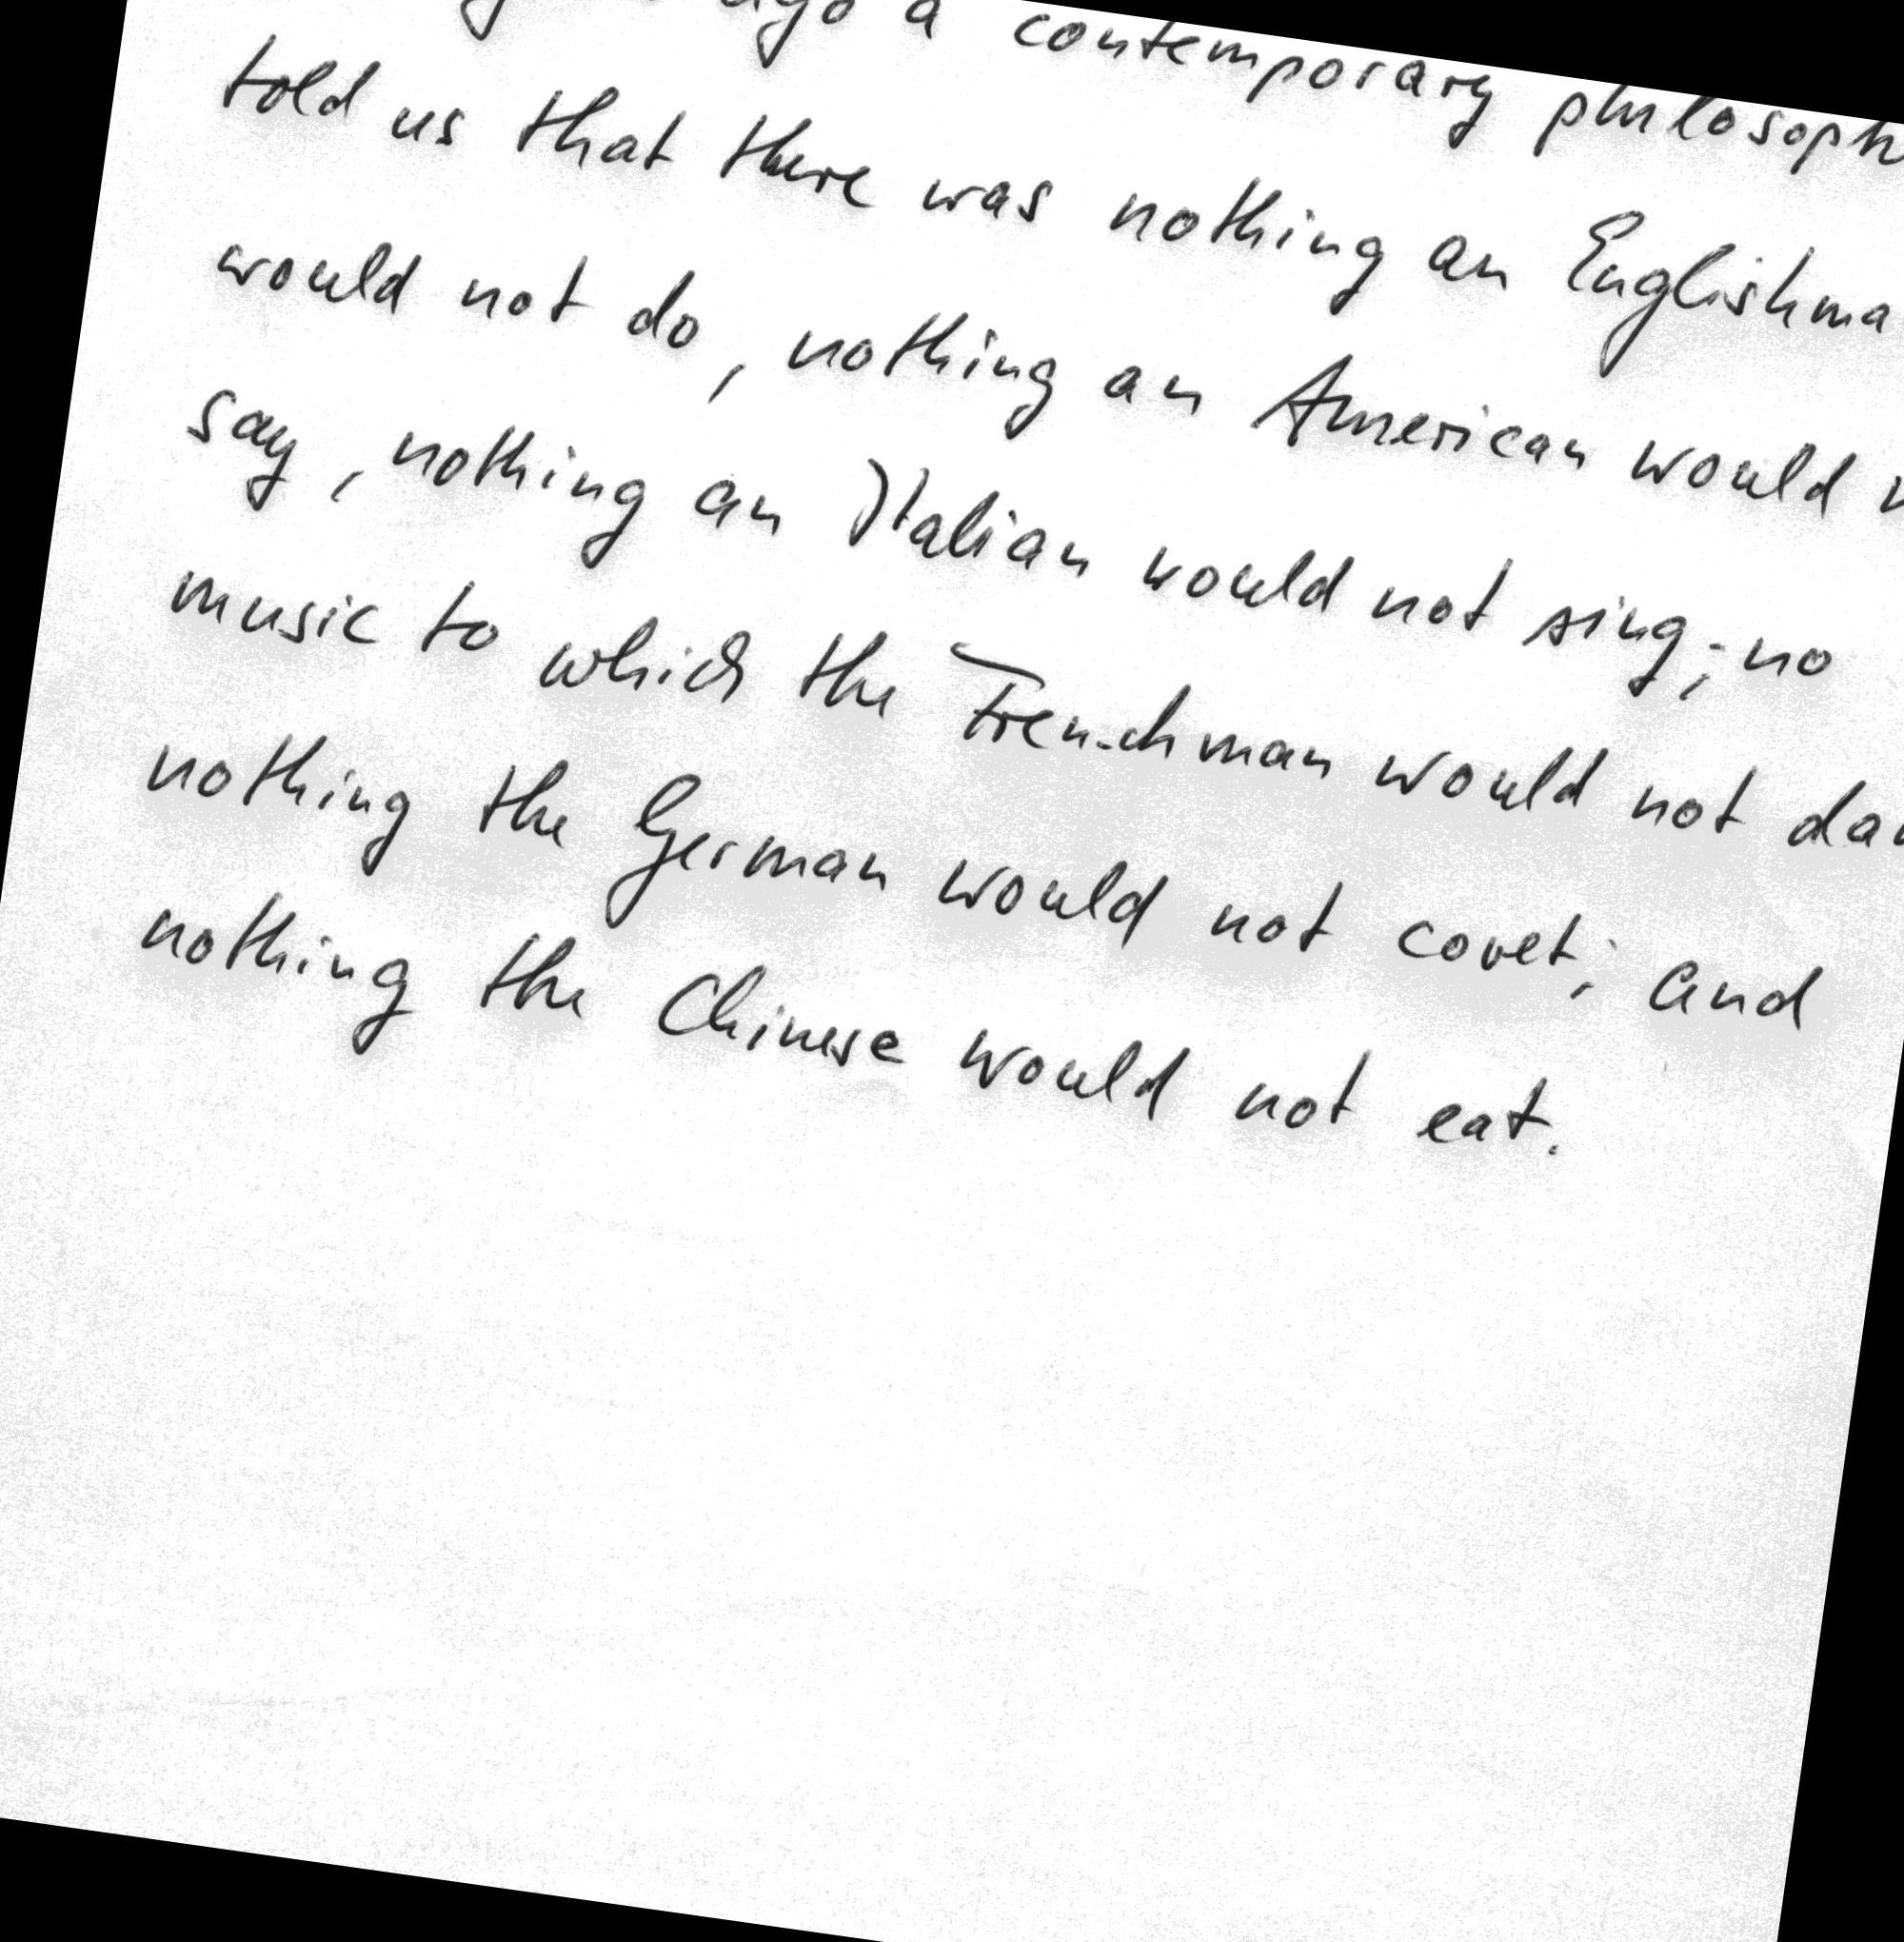 ago a contemporary
told us that there was nothing an
would not do, nothing an American would
say, nothing an Italian would not sing; no
music to which the Frenchman would not
nothing the German would not covet; and
nothing the Chinese would not eat.